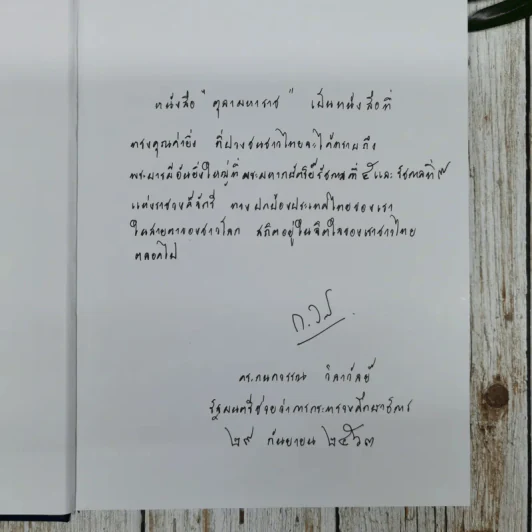 หนังสือ "ตุลามหาราช" เป็นหนังสือที่
ทรงคุณค่ายิ่ง ที่ปวงชนชาวไทยจะได้ทราบถึง
พระบารมีอันยิ่งใหญ่ที่พระมหากษัตริย์รัชกาลที่ ๕ และรัชกาลที่ ๙
แห่งราชวงศ์จักรี ทรงปกป้องประเทศไทยของเรา
ในสายตาของชาวโลก สถิตอยู่ในจิตใจของเราชาวไทย
ตลอดไป
ก.วล
ดร.กนกวรรณ วิลาวัลย์
รัฐมนตรีช่วยว่าการกระทรวงศึกษาธิการ
๒๙ กันยายน ๒๕๖๓